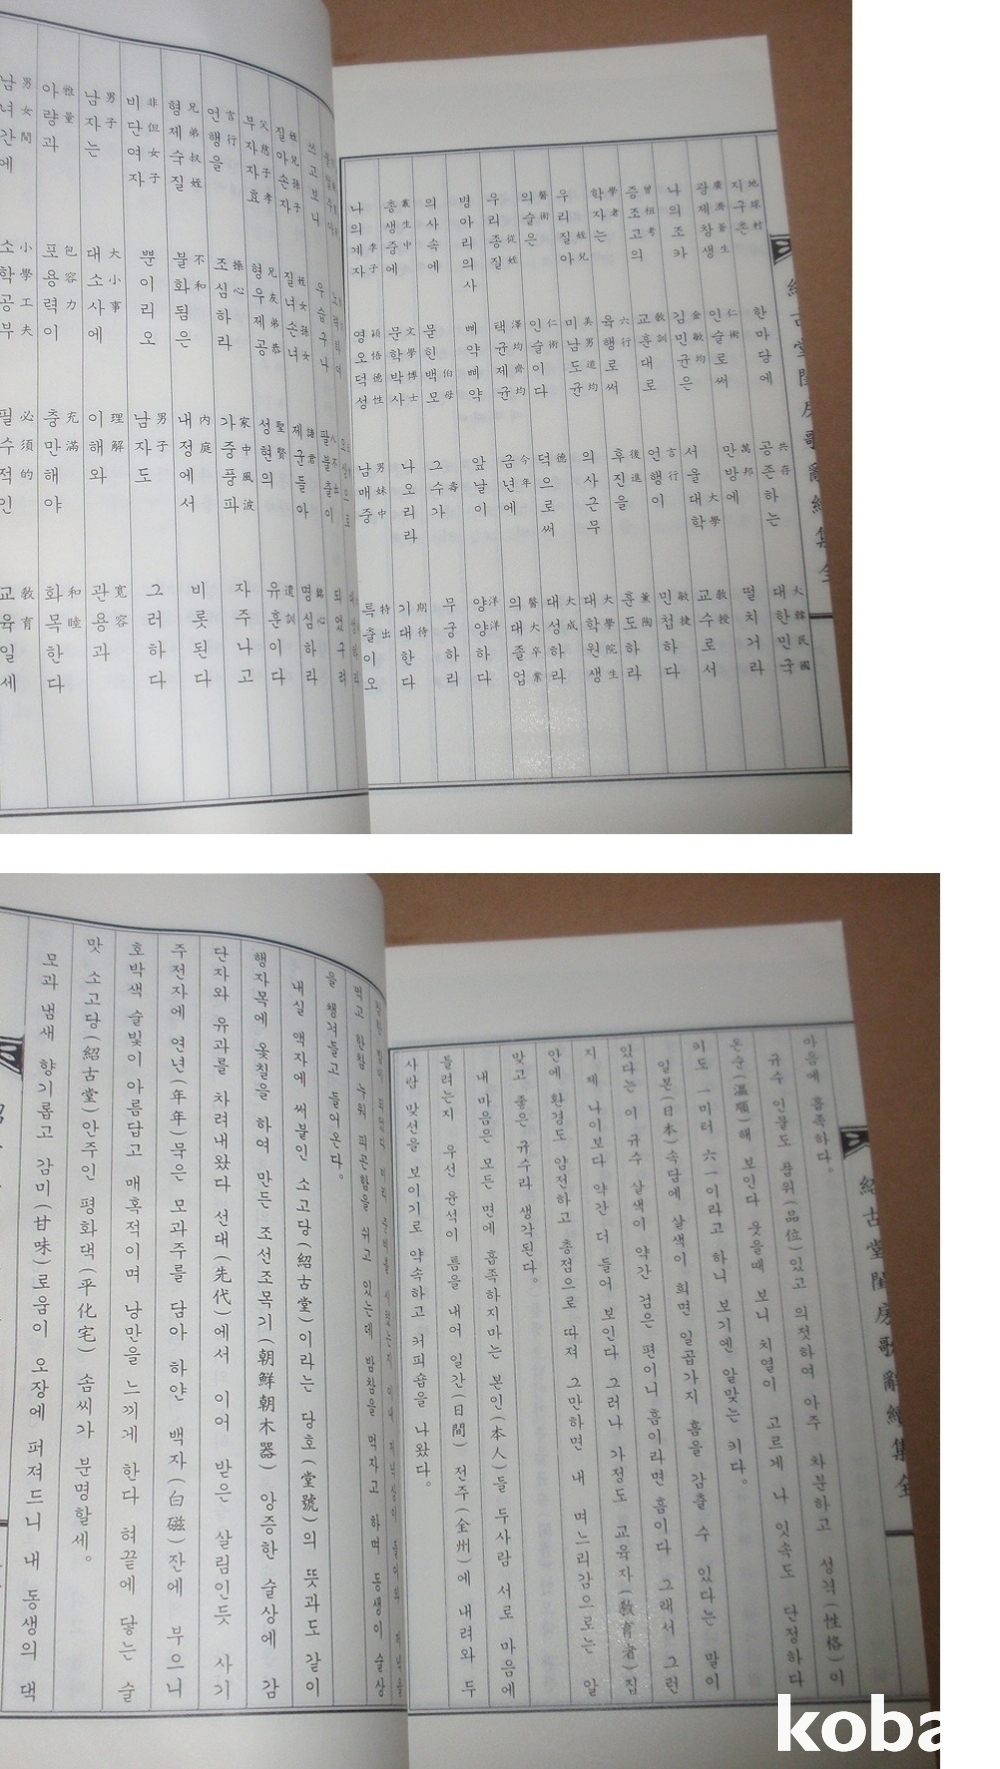 紹古堂閨房歌辭續集 全
지구촌 한마당에 공존하는 대한민국
地球村 共存 大韓民國
광제창생 인술로써 만방에 떨치거라
廣濟蒼生 仁術 萬邦
나의조카 김민균은 서울대학 교수로서
金敏均 大學 敎授
증조고의 교훈대로 언행이 민첩하다
曾祖考 敎訓 言行 敏捷
학자는 육행로써 후진을 훈도하라
學者 六行 後進 薰陶
우리질아 미남도균 의사근무 대학원생
姪兒 美男道均 大學院生
의술은 인술이다 덕으로써 대성하라
醫術 仁術 德 大成
우리종질 택균제균 금년에 의대졸업
從姪 澤均齊均 今年 醫大卒業
병아리의사 삐약삐약 앞날이 양양하다
洋洋
의사속에 묻힌백모 그수가 무궁하리
伯母 壽
총생중에 문학박사 나오리라 기대한다
叢生中 文學博士 期待
나의계자 영오덕성 남매중 특출이오
季子 穎悟德性 男妹中 特出
쓰고보니 우습구나 팔불출이 되었구려
八不出
질아손자 질녀손녀 제군들아 명심하라
姪兒孫子 姪女孫女 諸君 銘心
부자자효 형우제공 성현의 유훈이다
父慈子孝 兄友弟恭 聖賢 遺訓
언행을 조심하라 가중풍파 자주나고
言行 操心 家中風波
형제숙질 불화됨은 내정에서 비롯된다
兄弟叔姪 不和 內庭
비단여자 뿐이리오 남자도 그러하다
非但女子 男子
남자는 대소사에 이해와 관용과
男子 大小事 理解 寬容
아량과 포용력이 충만해야 화목한다
雅量 包容力 充滿 和睦
남녀간에 소학공부 필수적인 교육일세
男女間 小學工夫 必須的 敎育
紹古堂閨房歌辭續集 全
마음에 흡족하다.
규수 인물도 품위(品位)있고 의젓하여 아주 차분하고 성격(性格)이
온순(溫順)해 보인다 웃을때 보니 치열이 고르게 나 잇속도 단정하다
키도 一미터 六一이라고 하니 보기엔 알맞는 키다.
일본(日本)속담에 살색이 희면 일곱가지 흠을 감출 수 있다는 말이
있다는 이 규수 살색이 약간 검은 편이니 흠이라면 흠이다 그래서 그런
지 제 나이보다 약간 더 들어 보인다 그러나 가정도 교육자(敎育者)집
안에 환경도 얌전하고 총점으로 따져 그만하면 내 며느리감으로는 알
맞고 좋은 규수라 생각된다.
내 마음은 모든 면에 흡족하지마는 본인(本人)들 두사람 서로 마음에
들려는지 우선 윤석이 틈을 내어 일간(日間) 전주(全州)에 내려와 두
사람 맞선을 보이기로 약속하고 커피숍을 나왔다.
먹고 한참 누워 피곤함을 쉬고 있는데 밤참을 먹자고 하며 동생이 술상
을 챙겨들고 들어온다.
내실 액자에 써붙인 소고당(紹古堂)이라는 당호(堂號)의 뜻과도 같이
행자목에 옻칠을 하여 만든 조선조목기(朝鮮朝木器) 앙증한 술상에 감
단자와 유과를 차려내왔다 선대(先代)에서 이어 받은 살림인듯 사기
주전자에 연년(年年)묵은 모과주를 담아 하얀 백자(白磁)잔에 부으니
호박색 술빛이 아름답고 매혹적이며 낭만을 느끼게 한다 혀끝에 닿는 술
맛 소고당(紹古堂)안주인 평화댁(平化宅) 솜씨가 분명할세.
모과 냄새 향기롭고 감미(甘味)로움이 오장에 퍼져드니 내 동생의 댁
koba